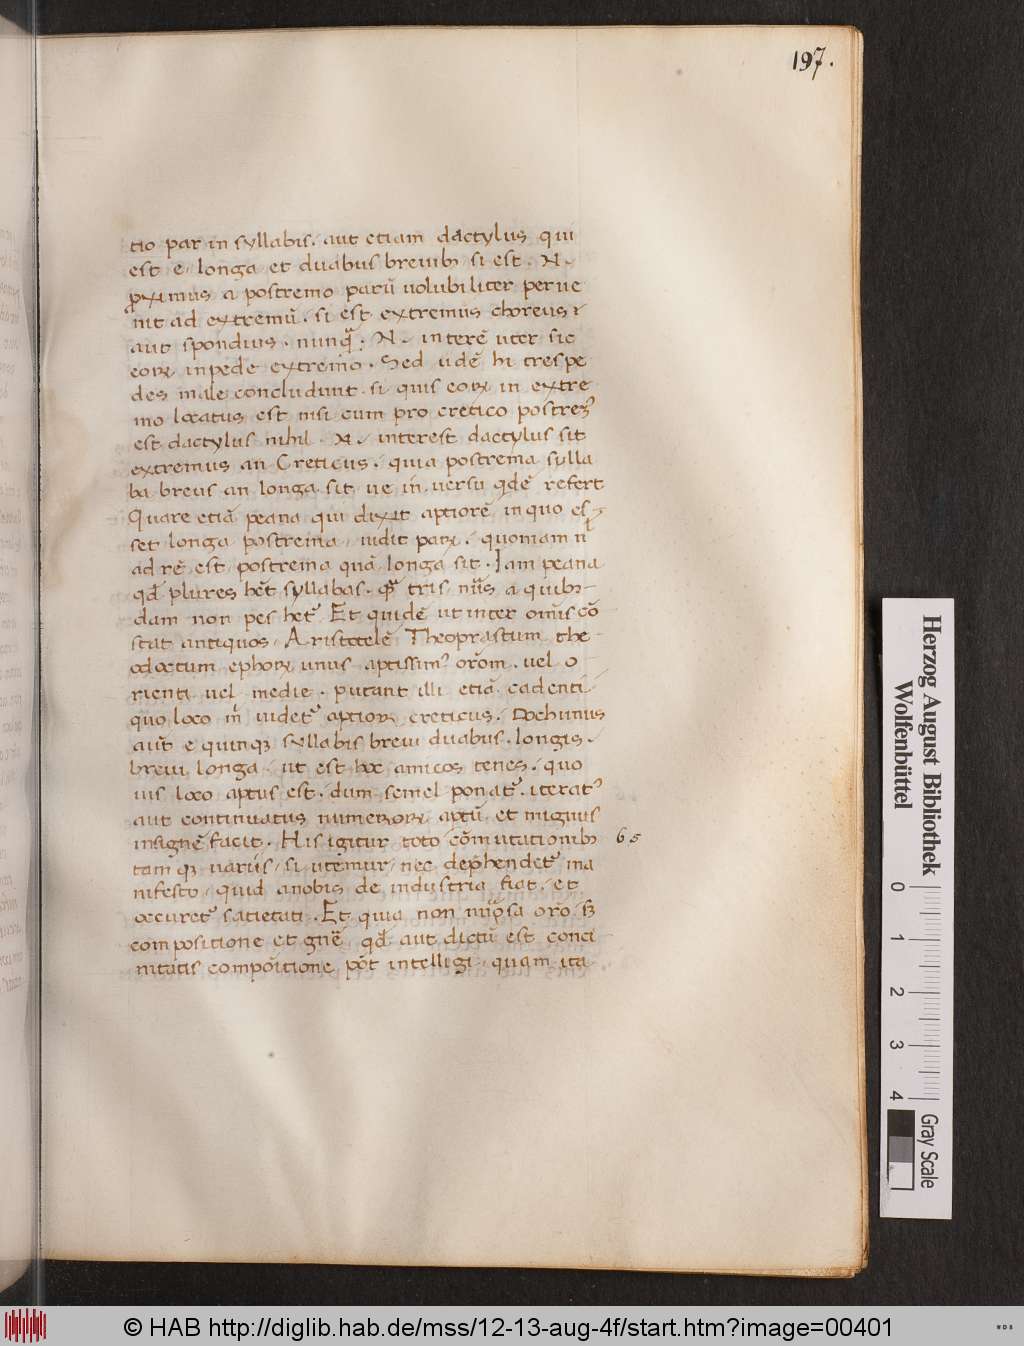 197.
tio par in syllabis. aut etiam dactylus qui
est e longa et duabus breuib3 si est. N.
ꝓximus a postremo parū uolubiliter perue
nit ad extremū. si est extremus choreus
aut spondius. nunq̃. N. interē uter sit
eoꝝ in pede extremo. Sed idē hi tres pe
des male concludunt. si quis eoꝝ in extre
mo locatus est nisi cum pro cretico postremꝰ
est dactylus nihil. N. interest dactylus sit
extremus an Creticus. quia postrema sylla
ba breus an longa sit ue in uersu qdē refert
Quare etiā peana qui dixit aptiorē in quo es
set longa postrema uidit parꝝ. quoniam n̄
ad rē est postrema quā longa sit. Iam peana
qđ plures hēt syllabas. q̃ tris nūs a quib3
dam non pes hetꝰ. Et quidē ut inter omīs cō
stat antiquos Aristotelē Theoprastum the
odoctum ephoꝝ unus aptissimꝰ orōm. uel o
rienti uel medie. putant illi etiā cadenti
quo loco m̄ uidetꝰ aptioꝝ creticus. Dochimus
aut̄ e quinqꝫ syllabis breui duabus longis.
breui longa. ut est hoc amicos tenes. quo
uis loco aptus est. dum semel ponatꝰ. iteratꝰ
aut continuatus numeroꝝ aptū et mignus
insignē facit. His igitur toto cōmutationib3 65
tam qꝫ uariis. si utemur nec deꝑhendetꝰ ma
nifesto quid a nobis de industria fiat. et
occuretꝰ satietati. Et quia non nūosa orō. s3
compositione et gn̄e qđ aut dictū est conci
nitatis compoitione pōt intelligi. quam ita
Herzog August Bibliothek
Wolfenbüttel
0 1 2 3 4
Gray Scale
© HAB http://diglib.hab.de/mss/12-13-aug-4f/start.htm?image=00401